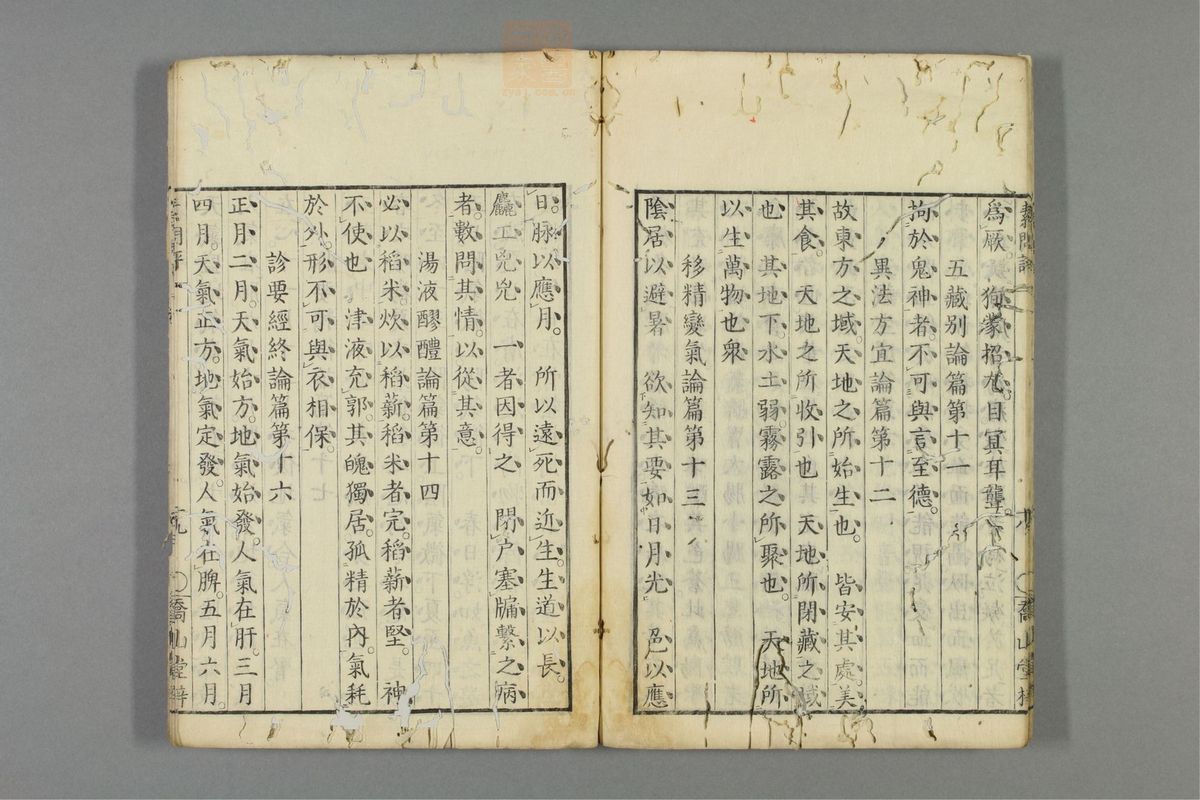 喬山堂梓
為厥。徇蒙招尤。目冥耳聾。
五藏別論篇第十一
拘於鬼神者。不可與言至德。
異法方宜論篇第十二
故東方之域。天地之所始生也。 皆安其處。美
其食。 天地之所收引也 天地所閉藏之域
也 其地下。水土弱。霧露之所聚也。 天地所
以生萬物也衆
移精變氣論篇第十三
陰居以避暑 欲知其要如日月光 色以應
日。脉以應月。 所以遠死而近生。生道以長。
麤工兇兇 一者因得之 閉戶塞牖。繫之病
者。數問其情。以從其意。
湯液醪醴論篇第十四
必以稻米。炊以稻薪。稻米者完。稻薪者堅。 神
不使也 津液充郭。其魄獨居。孤精於內。氣耗
於外。形不可與衣相保。
診要經終論篇第十六
正月二月。天氣始方。地氣始發。人氣在肝。三月
四月。天氣正方。地氣定發。人氣在脾。五月六月。
喬山堂梓